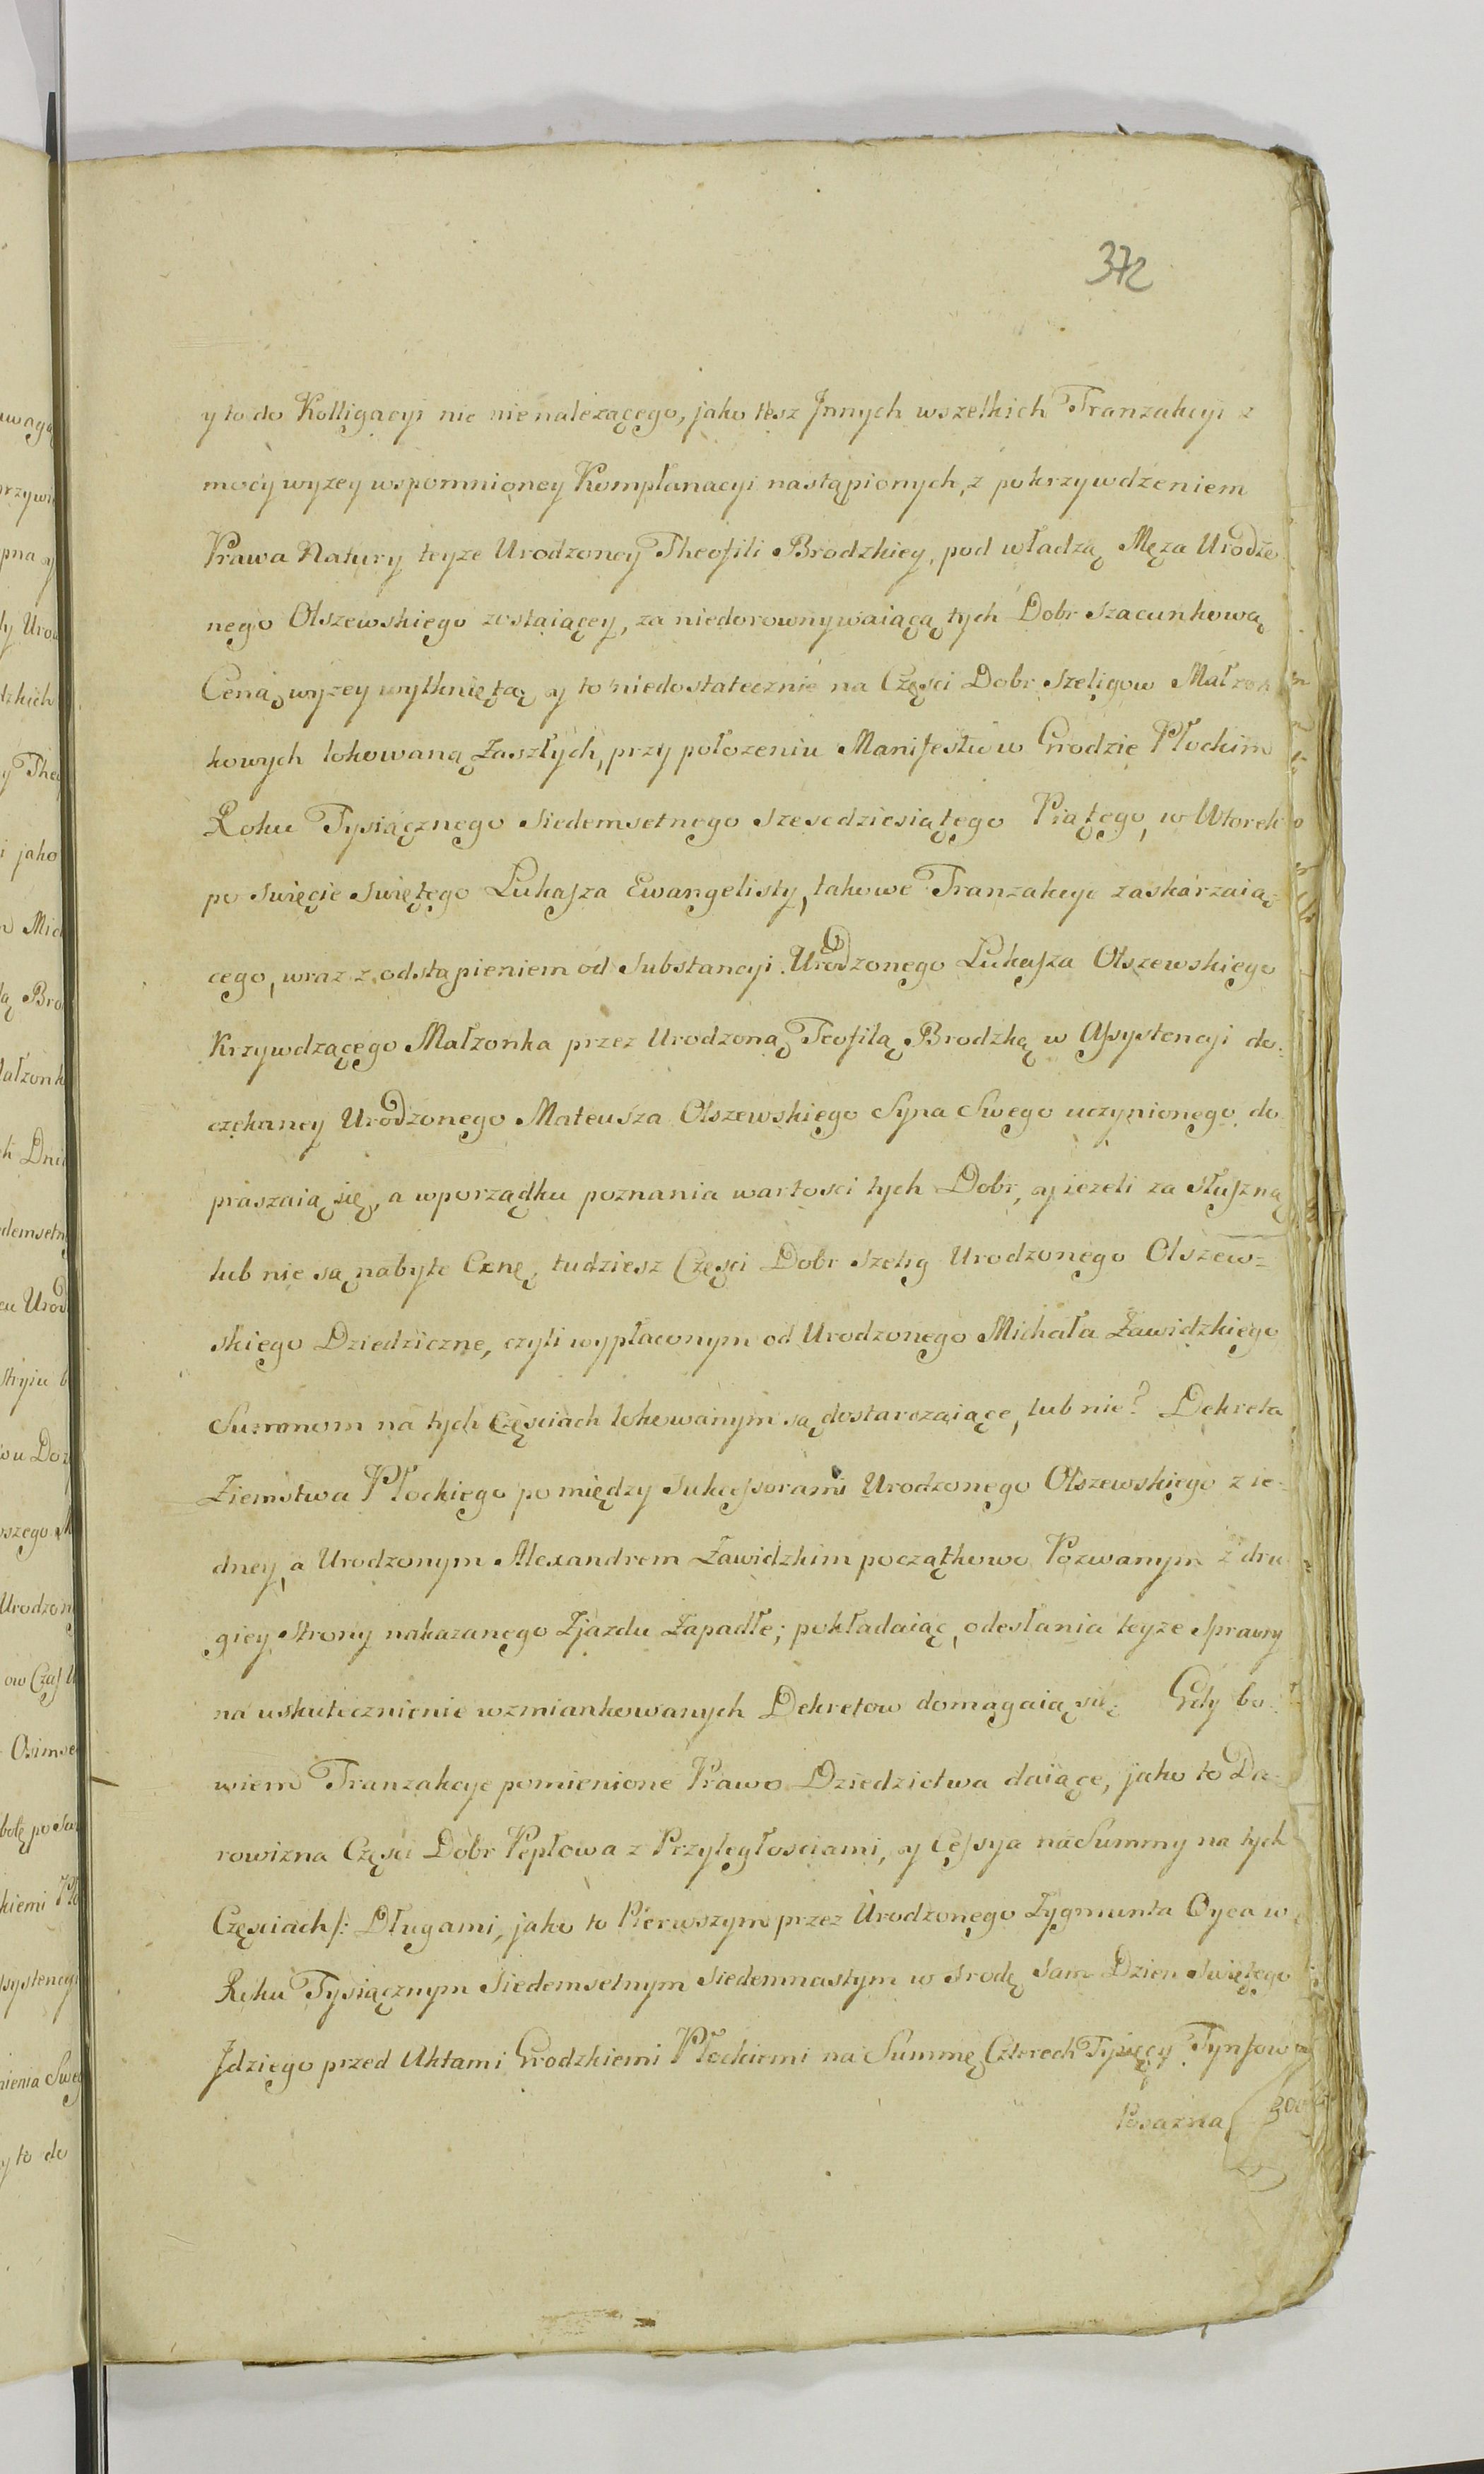 372
y to do Kolligacyi nic nienależącego, jako tesz Jnnych wszelkich Tranzakcyi z
mocy wyzey wspomnioney Komplanacyi nastąpionych, z pokrzywdzeniem
Prawa Natury teyze Urodzoney Theofili Brodzkiey, pod władzą Męza Urodzo
nego Olszewskiego zostaiącey, za niedorownywaiącą tych Dobr szacunkową
Ceną, wyzey wytkniętą, y to niedostatecznie na Częsci Dobr Szeligow Małzon
kowych lokowaną Zaszłych, przy położeniu Manifestu w Grodzie Płockim
Roku Tysiącznego Siedemsetnego szescdziesiątego Piątego, w Wtorek
po swięcie swiętego Lukasza Ewangelisty, takowe Tranzakcye zaskarzaią-
cego, wraz z odstąpieniem od Substancyi Urodzonego Lukasza Olszewskiego
Krzywdzącego Małzonka przez Urodzoną Teofilą Brodzką w Assystencyi do-
czekaney Urodzonego Mateusza Olszewskiego Syna Swego uczynionego do
praszaią się, a w porządku poznania wartosci tych Dobr, y iezeli za słuszną
lub nie są nabyte Cenę, tudziesz Częsci Dobr Szelig Urodzonego Olszew-
skiego Dziedziczne, czyli wypłaconym od Urodzonego Michała Zawidzkiego
Summom na tych Częsciach lokowanym są dostarczaiące, lub nie? Dekreta
Ziemstwa Płockiego pomiędzy Sukcessorami Urodzonego Olszewskiego z ie-
dney, a Urodzonym Alexandrem Zawidzkim początkowo Pozwanym z dru
giey strony nakazanego Zjazdu Zapadłe; pokładaiąc, odesłania teyze sprawy
na uskutecznienie wzmiankowanych Dekretow domagaią się. Gdy bo-
wiem Tranzakcye pomienione Prawo Dziedzictwa daiące, jako to Da-
rowizna Częsci Dobr Pepłowa z Przyległosciami, y Cessya na Summy na tych
Częsciach /: Długami, jako to Pierwszym przez Urodzonego Zygmunta Oyca w
Roku Tysiącznym Siedemsetnym Siedemnastym w srodę sam Dzien swiętego
Jdziego przed Aktami Grodzkiemi Płockiemi na Summę Czterech Tysięcy Tynfow
Posazna